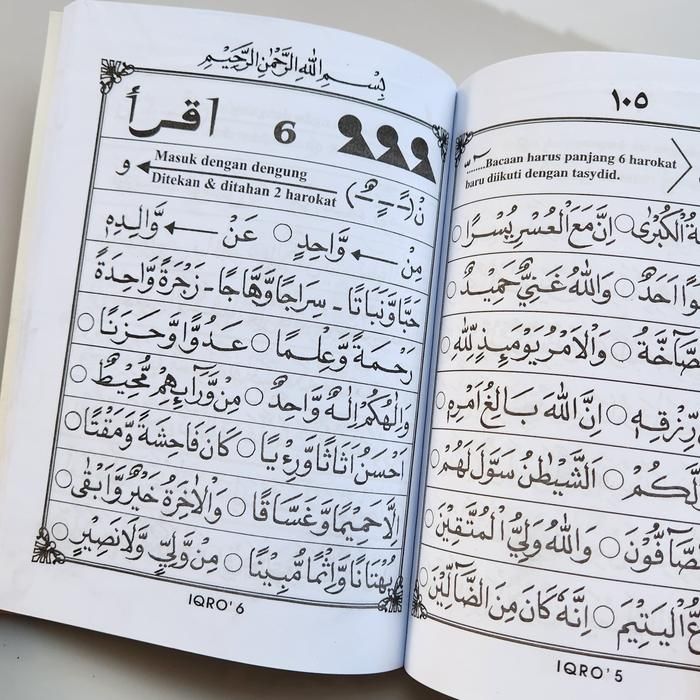 بِسْمِ اللهِ الرَّحْمٰنِ الرَّحِيْمِ
اقرأ 6 ووو
نْ (ـًـ ـٍـ ـٌـ) Masuk dengan dengung و
Ditekan & ditahan 2 harokat
مِنْ وَّاحِدٍ ○ عَنْ وَّالِدِهٖ
حَبًّا وَّنَبَاتًا - سِرَاجًا وَّهَّاجًا - زَجْرَةٌ وَّاحِدَةٌ
رَحْمَةً وَّعِلْمًا ○ عَدُوًّا وَّحَزَنًا ○
وَاِلٰهُكُمْ اِلٰهٌ وَّاحِدٌ ○ مِنْ وَّرَآئِهِمْ مُّحِيْطٌ ○
اَحْسَنُ اَثَاثًا وَّرِءْيًا ○ كَانَ فَاحِشَةً وَّمَقْتًا ○
اِلَّا حَمِيْمًا وَّغَسَّاقًا ○ وَالْاٰخِرَةُ خَيْرٌ وَّاَبْقٰى ○
بُهْتَانًا وَّاِثْمًا مُّبِيْنًا ○ مِنْ وَّلِيٍّ وَّلَا نَصِيْرٍ ○
IQRO' 6
١٠٥
........Bacaan harus panjang 6 harokat
baru diikuti dengan tasydid.
الْكُبْرٰى ○ اِنَّ مَعَ الْعُسْرِ يُسْرًا ○
اَحَدٌ ○ وَاللهُ غَنِيٌّ حَمِيْدٌ ○
الصَّآخَّةُ ○ وَالْاَمْرُ يَوْمَئِذٍ لِّلّٰهِ ○
رِزْقِهٖ ○ اِنَّ اللهَ بَالِغُ اَمْرِهٖ ○
لَكُمْ ○ الشَّيْطٰنُ سَوَّلَ لَهُمْ ○
الصَّآفُّوْنَ ○ وَاللهُ وَلِيُّ الْمُتَّقِيْنَ ○
الْيَتِيْمَ ○ اِنَّهٗ كَانَ مِنَ الضَّآلِّيْنَ ○
IQRO' 5